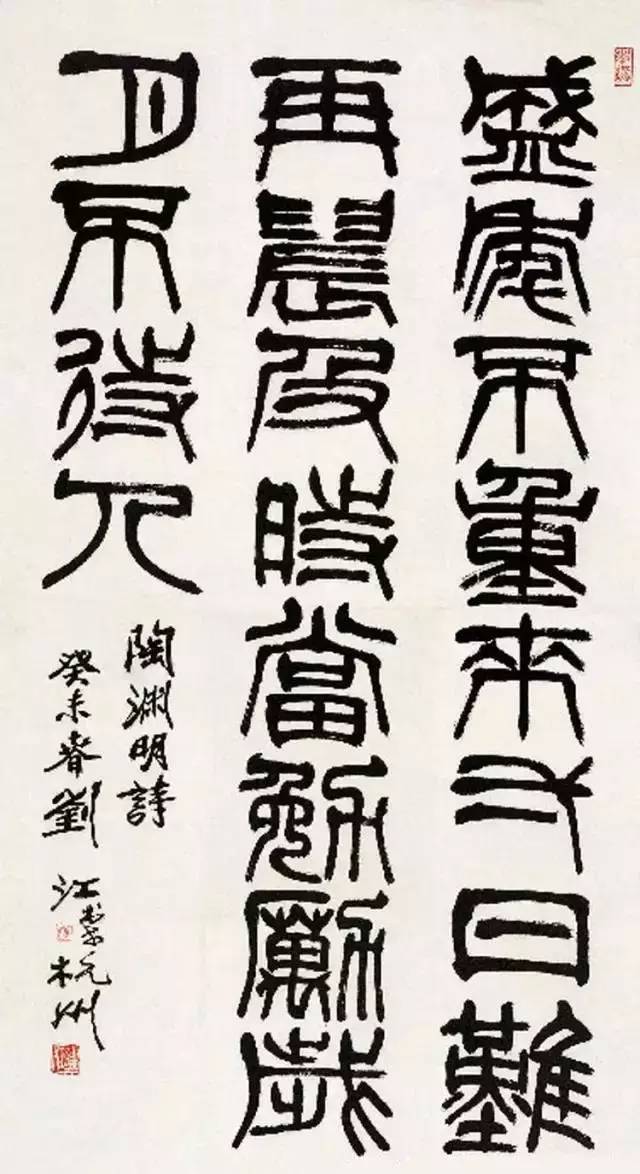 盛年不重來一日難
再晨及時當勉勵歲
月不待人
陶淵明詩
癸未春劉江杭州